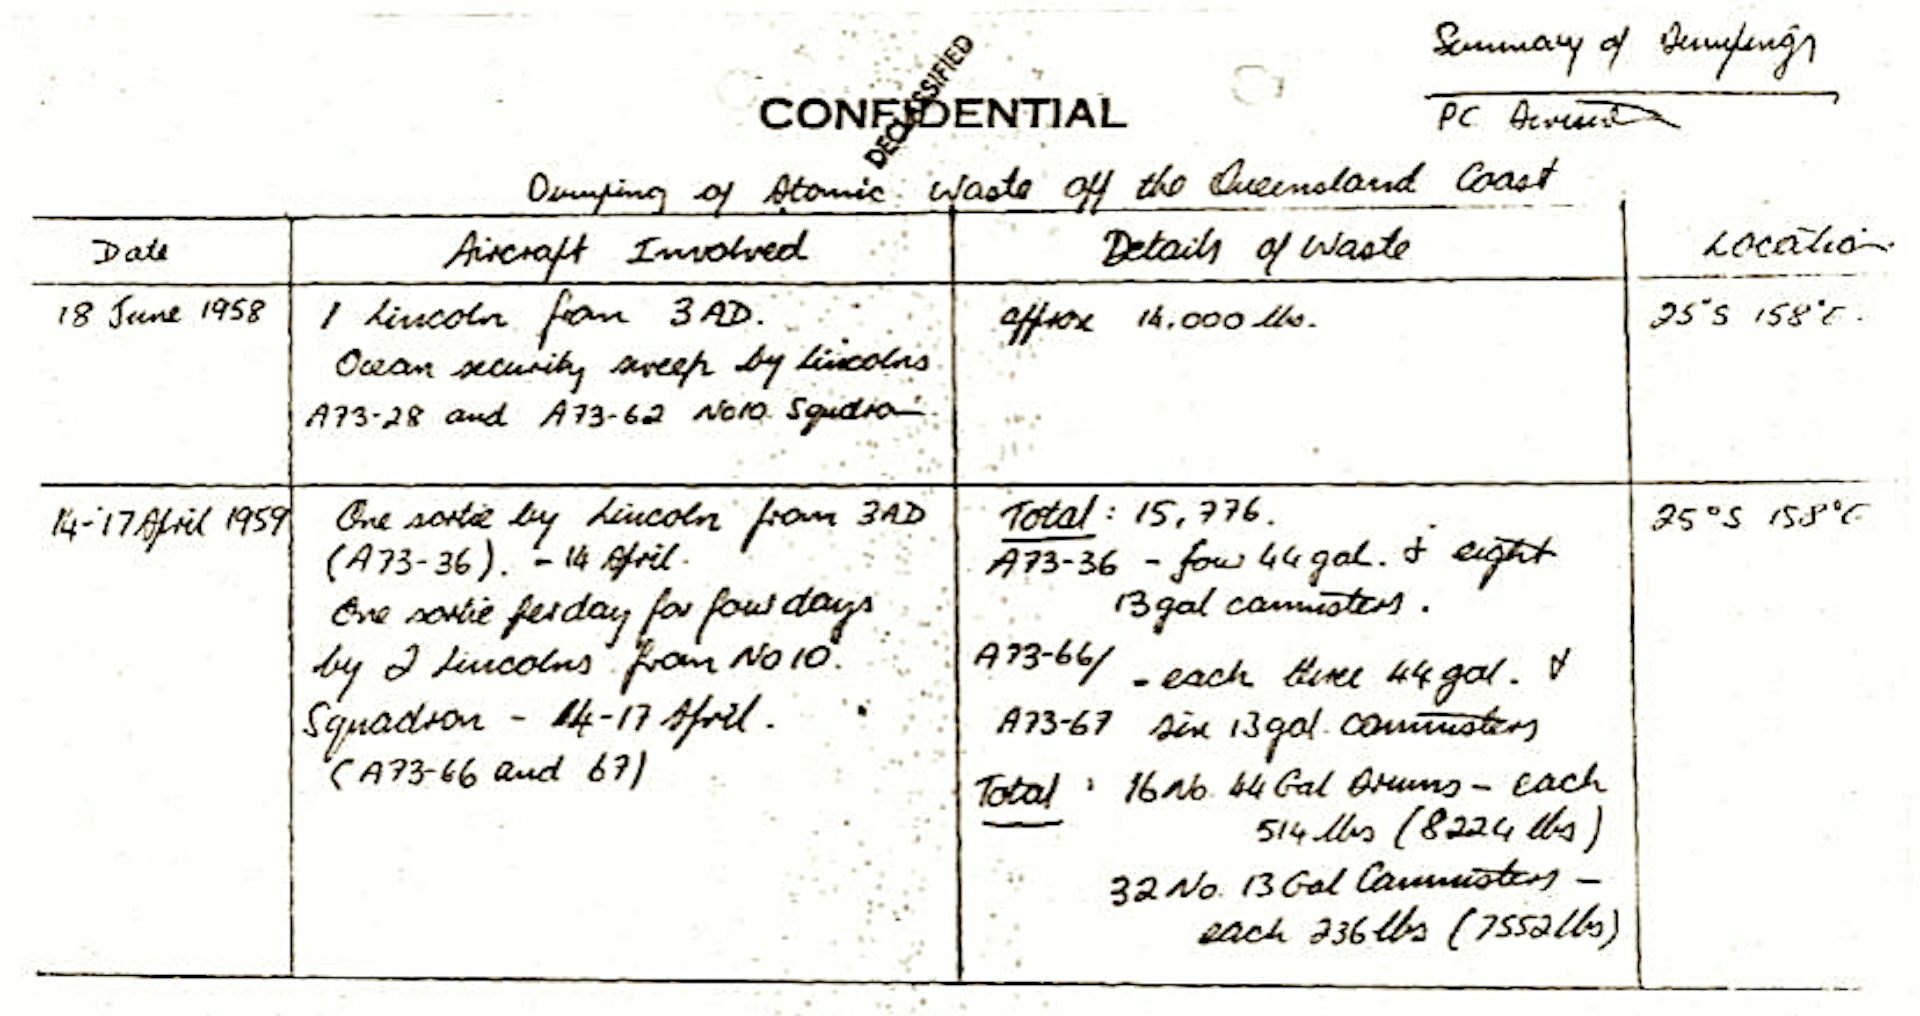 Summary of Dumpings
CONFIDENTIAL
DECLASSIFIED
PC
Dumping of Atomic Waste off the Queensland Coast
Date
Aircraft Involved
Details of Waste
Location
18 June 1958
1 Lincoln from 3AD.
Ocean security sweep by Lincolns
A73-28 and A73-62 No10 Squdron
approx 14.000 lbs.
25°S 158°E.
14-17 April 1959
One sortie by Lincoln from 3AD
(A73-36). - 14 April.
One sortie per day for four days
by 2 Lincolns from No 10.
Squadron - 14-17 April.
(A73-66 and 67)
Total: 15,776.
A73-36 - four 44 gal. & eight
13 gal cannisters.
A73-66/
- each three 44 gal. &
A73-67 six 13 gal. cannisters
Total : 16 No. 44 Gal Drums - each
514 lbs (8224 lbs)
32 No. 13 Gal Cannisters -
each 236 lbs (7552 lbs)
25°S 158°E